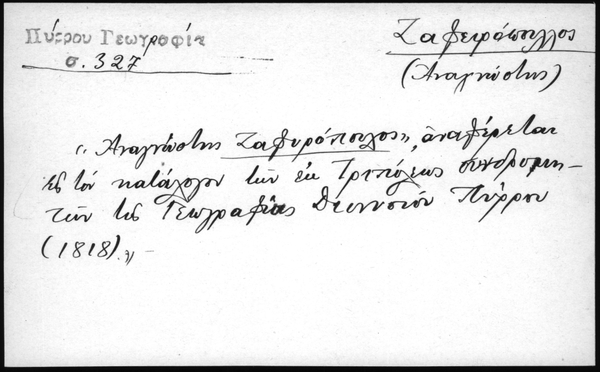 Πύρρου Γεωγραφία
σ. 327
Ζαφειρόπουλος
(Αναγνώστης)
«Αναγνώστης Ζαφυρόπουλος», αναφέρεται
εις τόν κατάλογον τών εκ Τριπόλεως συνδρομη-
τών της Γεωγραφίας Διονυσίου Πύρρου
(1818).» —